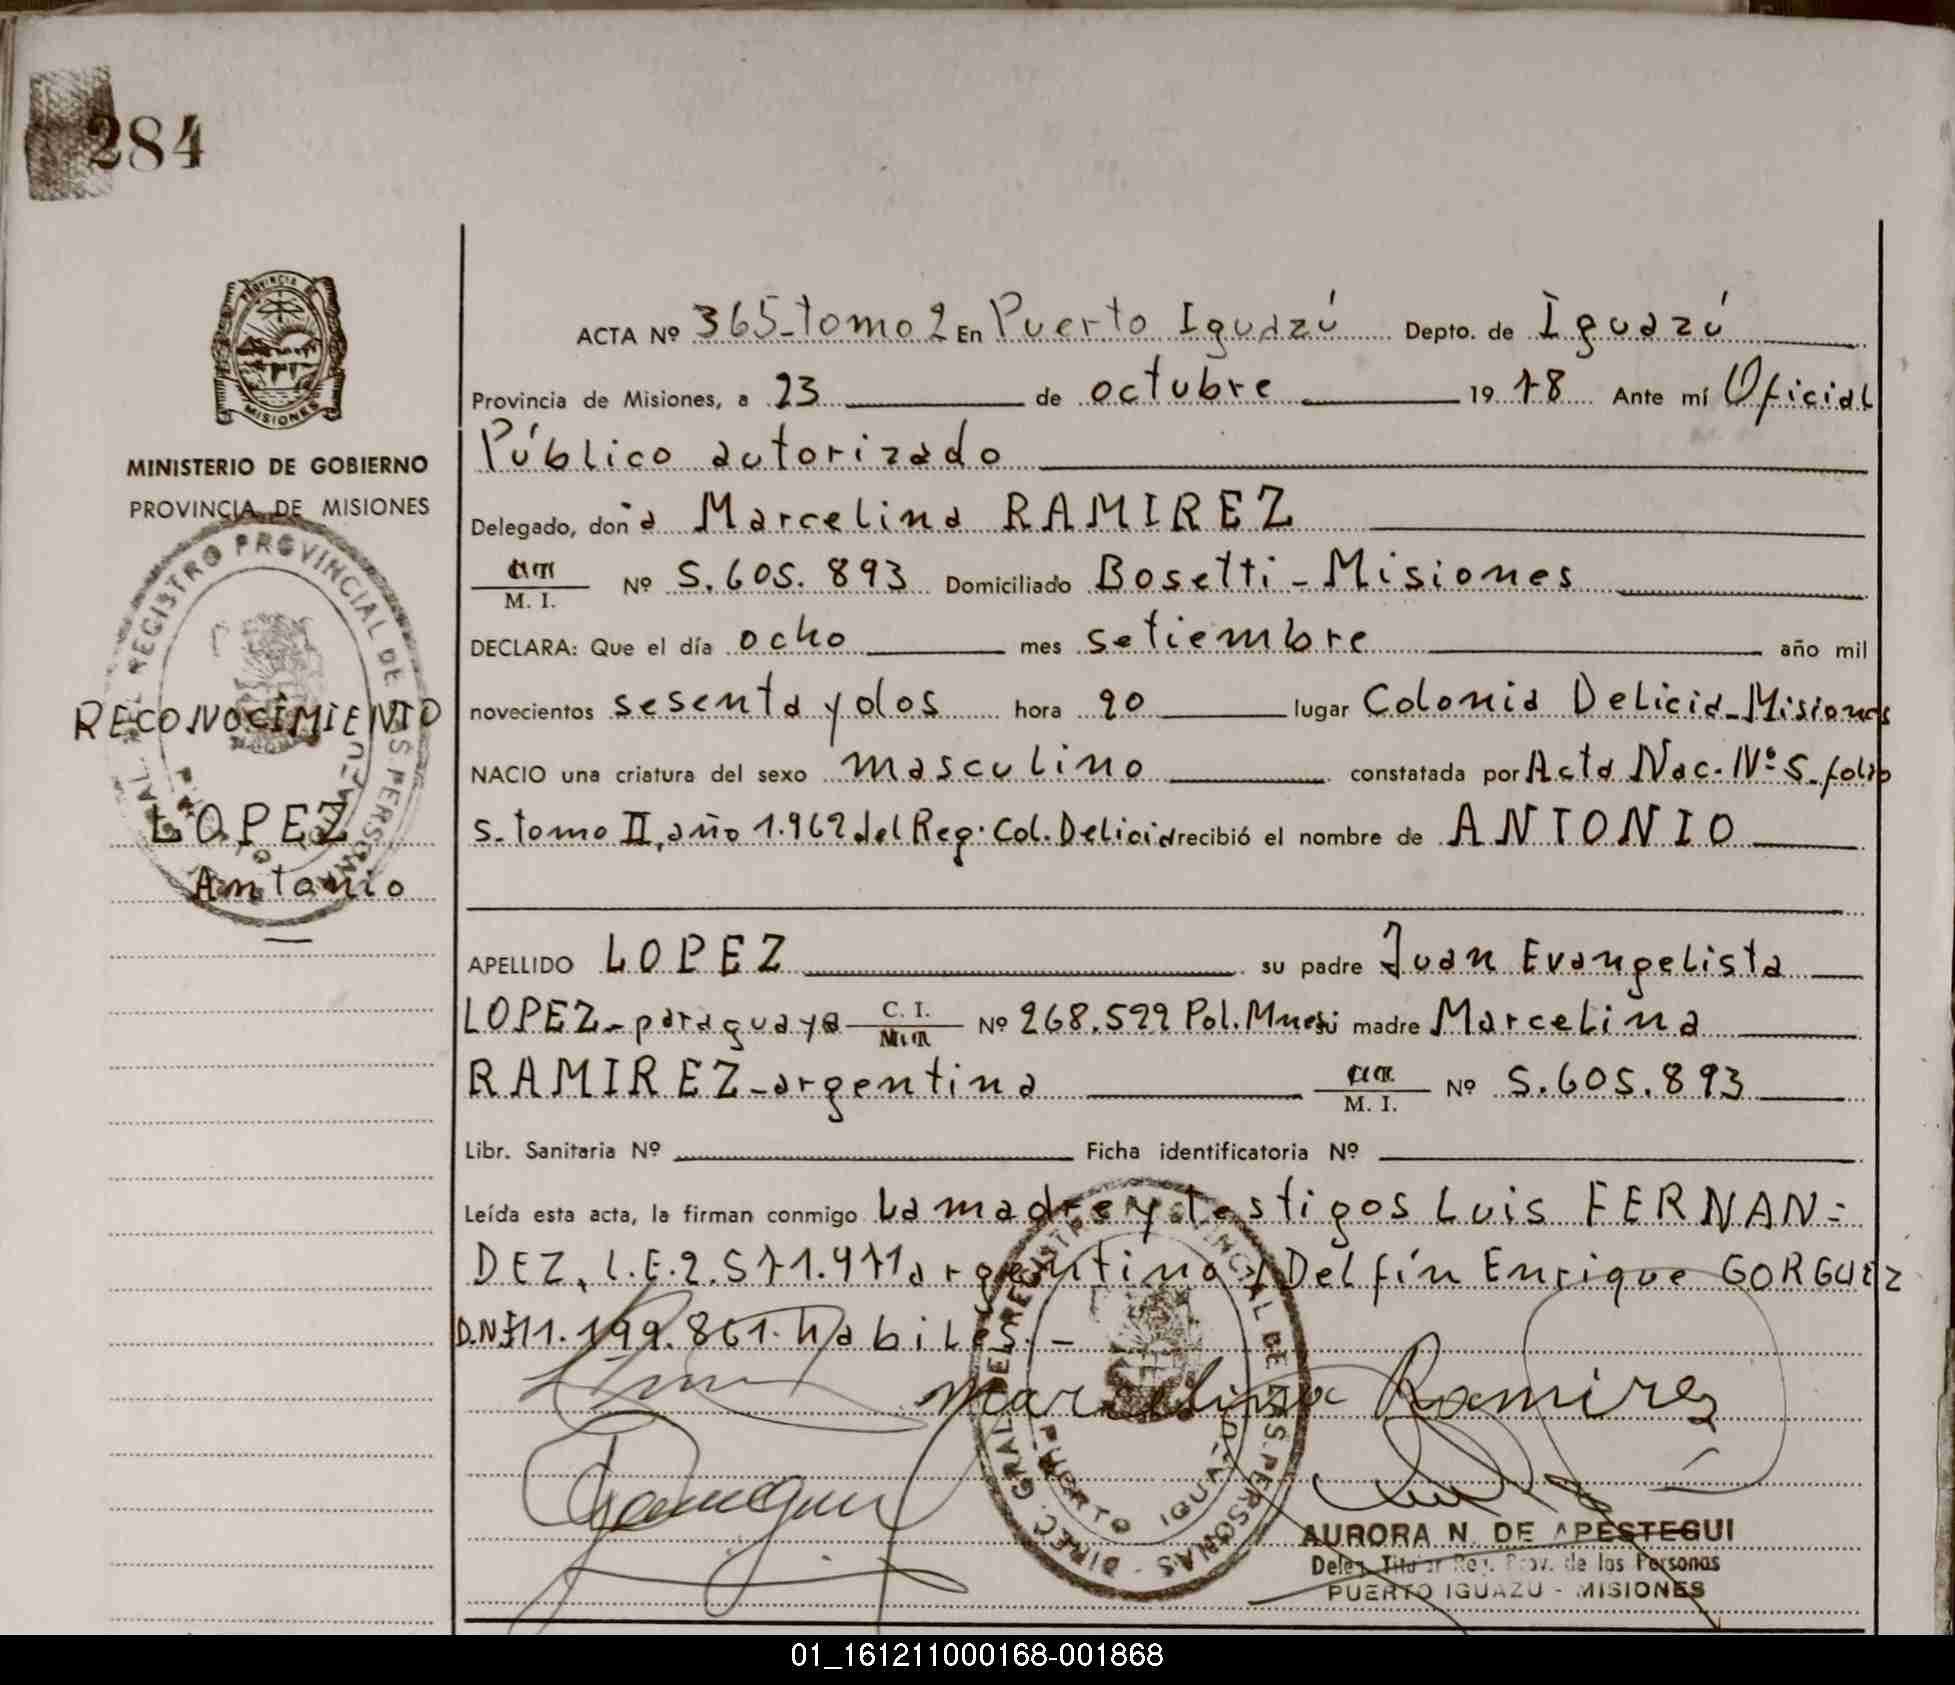 284
PROVINCIA DE
MISIONES
MINISTERIO DE GOBIERNO
PROVINCIA DE MISIONES
REGISTRO PROVINCIAL DE
RECONOCIMIENTO
LOPEZ
Antonio
ACTA Nº 365-tomo 2 En Puerto Iguazú Depto. de Iguazú
Provincia de Misiones, a 23 de octubre 1978 Ante mí Oficial
Público autorizado
Delegado, doña Marcelina RAMIREZ
M. I. Nº 5.605.893 Domiciliado Bosetti - Misiones
DECLARA: Que el día ocho mes setiembre año mil
novecientos sesenta y dos hora 20 lugar Colonia Delicia-Misiones
NACIO una criatura del sexo masculino constatada por Acta Nac. Nº 5-folio
5-tomo II, año 1.962 del Reg. Col. Delicia recibió el nombre de ANTONIO
APELLIDO LOPEZ su padre Juan Evangelista
LOPEZ-paraguaya C. I. Nº 268.522 Pol. Mnes. madre Marcelina
RAMIREZ-argentina M. I. Nº 5.605.893
Libr. Sanitaria Nº Ficha identificatoria Nº
Leída esta acta, la firman conmigo la madre y testigos Luis FERNAN=
DEZ, L.E. 2.577.977 argentino y Delfín Enrique GORGUEZ
D.N.I 11.199.861. Hábiles.-
Marcelina Ramirez
DIREC. GRAL. DEL REGISTRO PROVINCIAL DE LAS PERSONAS
PUERTO IGUAZU
AURORA N. DE APESTEGUI
Deleg. Titular Reg. Prov. de las Personas
PUERTO IGUAZU - MISIONES
01_161211000168-001868